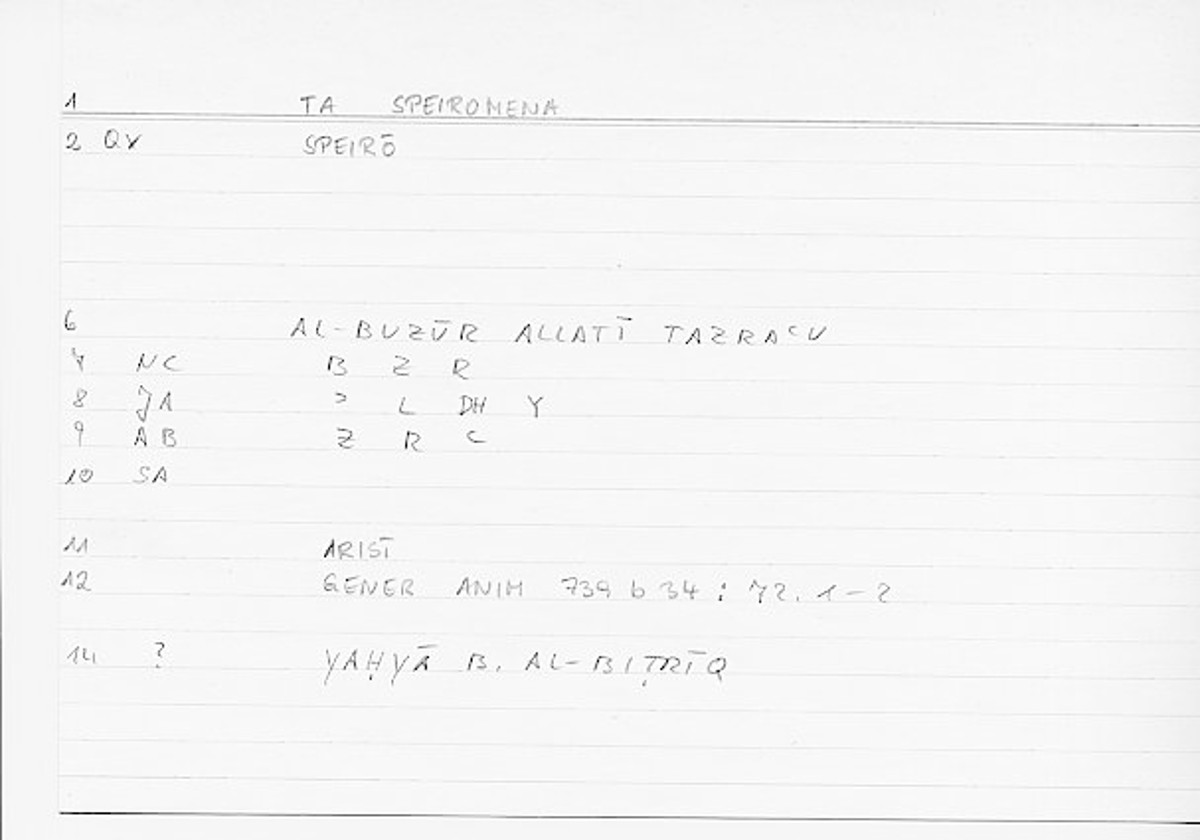 1 TA SPEIROMENA
2 QV SPEIRŌ
6 AL-BUZŪR ALLATĪ TAZRAʿU
7 NC B Z R
8 JA ʾ L DH Y
9 AB Z R ʿ
10 SA
11 ARIST
12 GENER ANIM 739 b 34 : 72. 1-2
14 ? YAḤYĀ B. AL-BIṬRĪQ